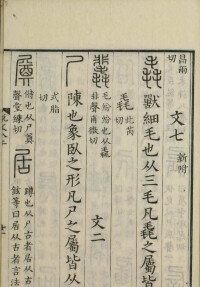 昌兩切
文七 新附
毳 獸細毛也从三毛凡毳之屬皆从
毳 此芮切
毛紛紛也从毳
非聲甫微切
文二
尸 陳也象臥之形凡尸之屬皆从
式脂切
偫也从尸奠
聲堂練切
居 蹲也从尸古者居从古
鉉等曰居从古者言法